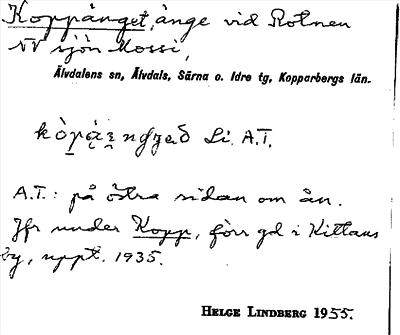 Koppänget, änge vid Rotnen
NV sjön Mossi,
Älvdalens sn, Älvdals, Särna o. Idre tg, Kopparbergs län.
Li. A.T.
A.T.: på östra sidan om ån.
Jfr under Kopp, förr gd i Kittans
by, uppt. 1935.
HELGE LINDBERG 1955.